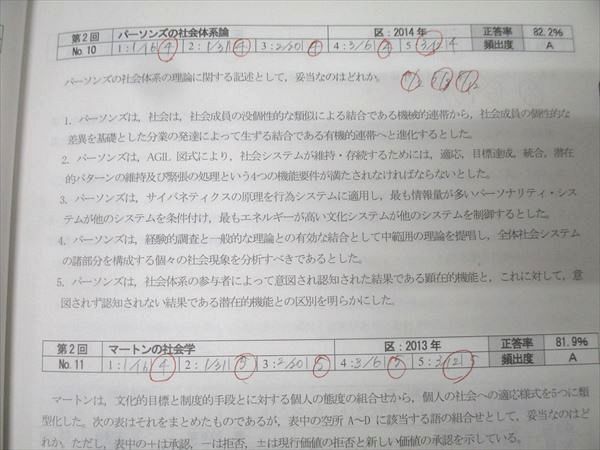 第2回 パーソンズの社会体系論 区：2014年 正答率 82.2%
No.10 1：1/16 ④ 2：1/31 ④ 3：2/20 ④ 4：3/6 ④ 5：3/12 4 頻出度 A
パーソンズの社会体系の理論に関する記述として，妥当なのはどれか。
1. パーソンズは，社会は，社会成員の没個性的な類似による結合である機械的連帯から，社会成員の個性的な
差異を基礎とした分業の発達によって生ずる結合である有機的連帯へと進化するとした。
2. パーソンズは，AGIL 図式により，社会システムが維持・存続するためには，適応，目標達成，統合，潜在
的パターンの維持及び緊張の処理という4つの機能要件が満たされなければならないとした。
3. パーソンズは，サイバネティクスの原理を行為システムに適用し，最も情報量が多いパーソナリティ・シス
テムが他のシステムを条件付け，最もエネルギーが高い文化システムが他のシステムを制御するとした。
4. パーソンズは，経験的調査と一般的な理論との有効な結合として中範囲の理論を提唱し，全体社会システム
の諸部分を構成する個々の社会現象を分析すべきであるとした。
5. パーソンズは，社会体系の参与者によって意図され認知された結果である顕在的機能と，これに対して，意
図されず認知されない結果である潜在的機能との区別を明らかにした。
第2回 マートンの社会学 区：2013年 正答率 81.9%
No.11 1：1/16 ④ 2：1/31 ⑤ 3：2/20 ⑤ 4：3/6 ⑤ 5：3/12 5 頻出度 A
マートンは，文化的目標と制度的手段とに対する個人の態度の組合せから，個人の社会への適応様式を5つに類
型化した。次の表はそれをまとめたものであるが，表中の空所 A～D に該当する語の組合せとして，妥当なのはど
れか。ただし，表中の＋は承認，－は拒否，±は現行価値の拒否と新しい価値の承認を示している。